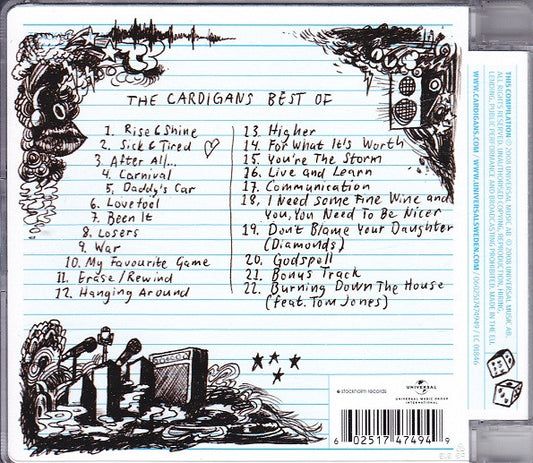 THE CARDIGANS BEST OF
1. Rise & Shine
2. Sick & Tired
3. After All...
4. Carnival
5. Daddy's Car
6. Lovefool
7. Been It
8. Losers
9. War
10. My Favourite Game
11. Erase/Rewind
12. Hanging Around
13. Higher
14. For What It's Worth
15. You're The Storm
16. Live and Learn
17. Communication
18. I Need Some Fine Wine and
You, You Need To Be Nicer
19. Don't Blame Your Daughter
(Diamonds)
20. Godspell
21. Bonus Track
22. Burning Down The House
(feat. Tom Jones)
stockholm records
UNIVERSAL
UNIVERSAL MUSIC GROUP
INTERNATIONAL
6 02517 47494 9
THIS COMPILATION ℗ 2008 UNIVERSAL MUSIC AB. © 2008 UNIVERSAL MUSIC AB.
ALL RIGHTS RESERVED. UNAUTHORISED COPYING, REPRODUCTION, HIRING,
LENDING, PUBLIC PERFORMANCE AND BROADCASTING PROHIBITED. MADE IN THE EU.
WWW.CARDIGANS.COM / WWW.UNIVERSALSWEDEN.COM / 0602517474949 / LC 06846